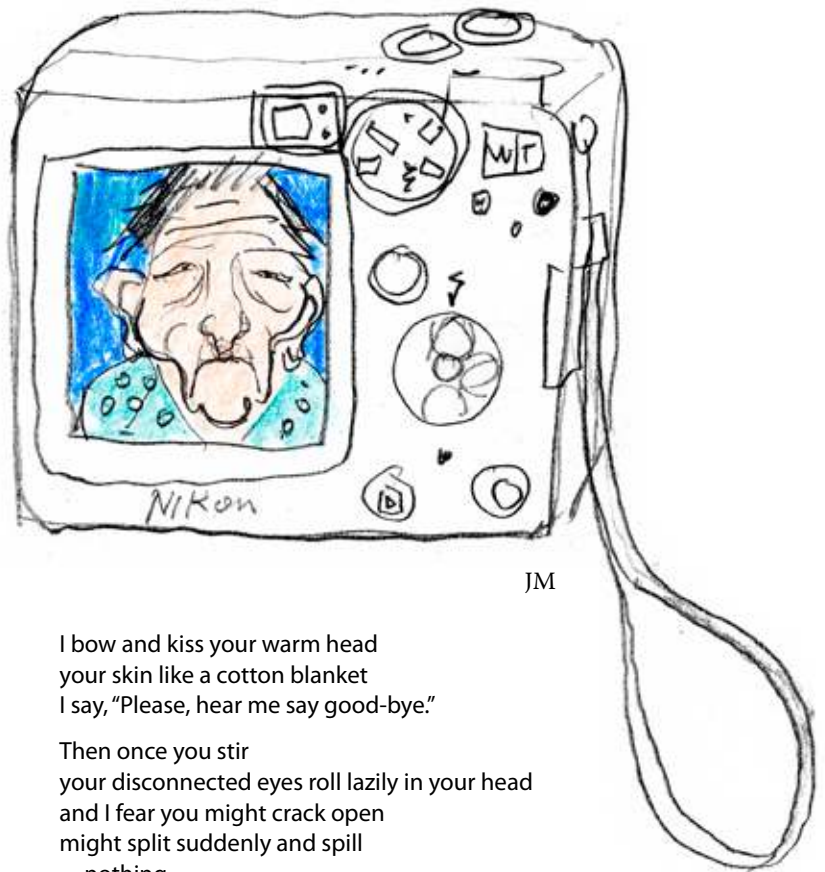 W T
Nikon
JM
I bow and kiss your warm head
your skin like a cotton blanket
I say, “Please, hear me say good-bye.”
Then once you stir
your disconnected eyes roll lazily in your head
and I fear you might crack open
might split suddenly and spill
nothing